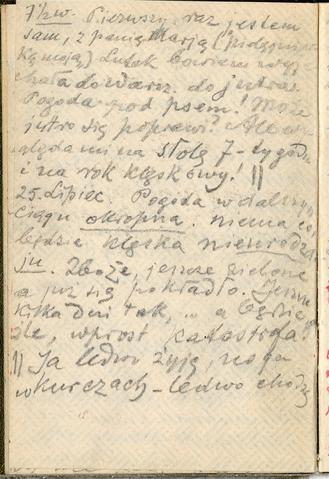 Pierwszy raz jestem
sam, z panią Marją (pielęgniar
ką moją) Lutek Bowiem wyje
chała do Warsz. do jutra.
Pogoda pod psem! Może
jutro się poprawi? Ale wy
gląda mi na stotę 7-tygodn
i na rok klęskowy! ||
25. Lipiec. Pogoda w dalszym
ciągu okropna. niema co,
będzie klęska nieurodza
ju. Zboże, jeszcze zielone
a już się pokładło. Jeszcze
kilka dni tak, .. a będzie
źle, wprost katastrofa!
|| Ja ledwo żyję, noga
w kurczach – ledwo chodzę